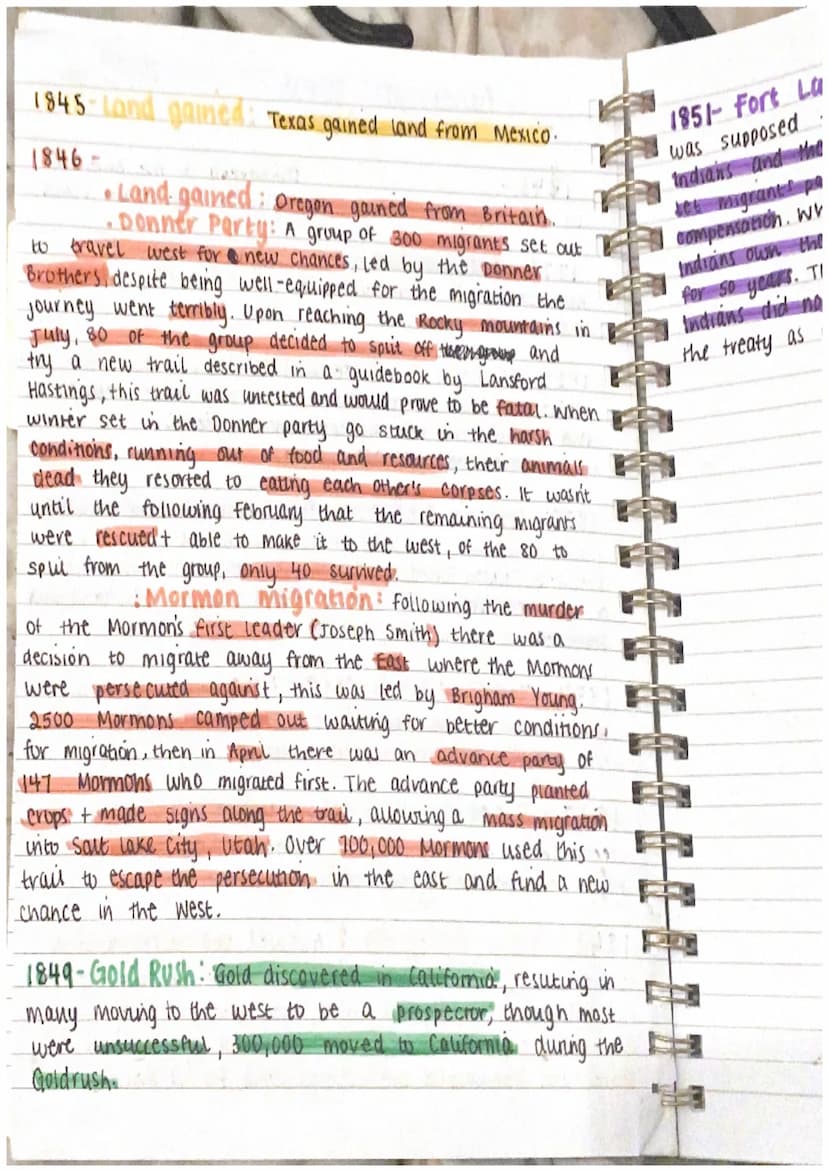 1845 - Land gained: Texas gained land from Mexico.
1846 -
• Land gained: Oregon gained from Britain.
• Donner Party: A group of 300 migrants set out
to travel west for new chances, Led by the Donner
Brothers, despite being well-equipped for the migration the
journey went terribly. Upon reaching the Rocky mountains in
July, 80 of the group decided to split off and
try a new trail described in a guidebook by Lansford
Hastings, this trail was untested and would prove to be fatal. When
winter set in the Donner party go stuck in the harsh
conditions, running out of food and resources, their animals
dead they resorted to eating each other's corpses. It wasn't
until the following february that the remaining migrants
were rescued + able to make it to the west, of the 80 to
split from the group, only 40 survived.
: Mormon Migration: following the murder
of the Mormon's first leader (Joseph Smith) there was a
decision to migrate away from the East where the Mormons
were persecuted against, this was led by Brigham Young.
2500 Mormons camped out waiting for better conditions
for migration, then in April there was an advance party of
147 Mormons who migrated first. The advance party planted
crops + made signs along the trail, allowing a mass migration
into Salt Lake City, Utah. Over 100,000 Mormons used this
trail to escape the persecution in the east and find a new
chance in the West.
1849 - Gold Rush: Gold discovered in California, resulting in
many moving to the west to be a prospector, though most
were unsuccessful, 300,000 moved to California during the
Goldrush.
1851- Fort La
was supposed
Indians and the
let migrants pa
compensation. Wh
Indians own the
for 50 years. Th
Indians did no
the treaty as